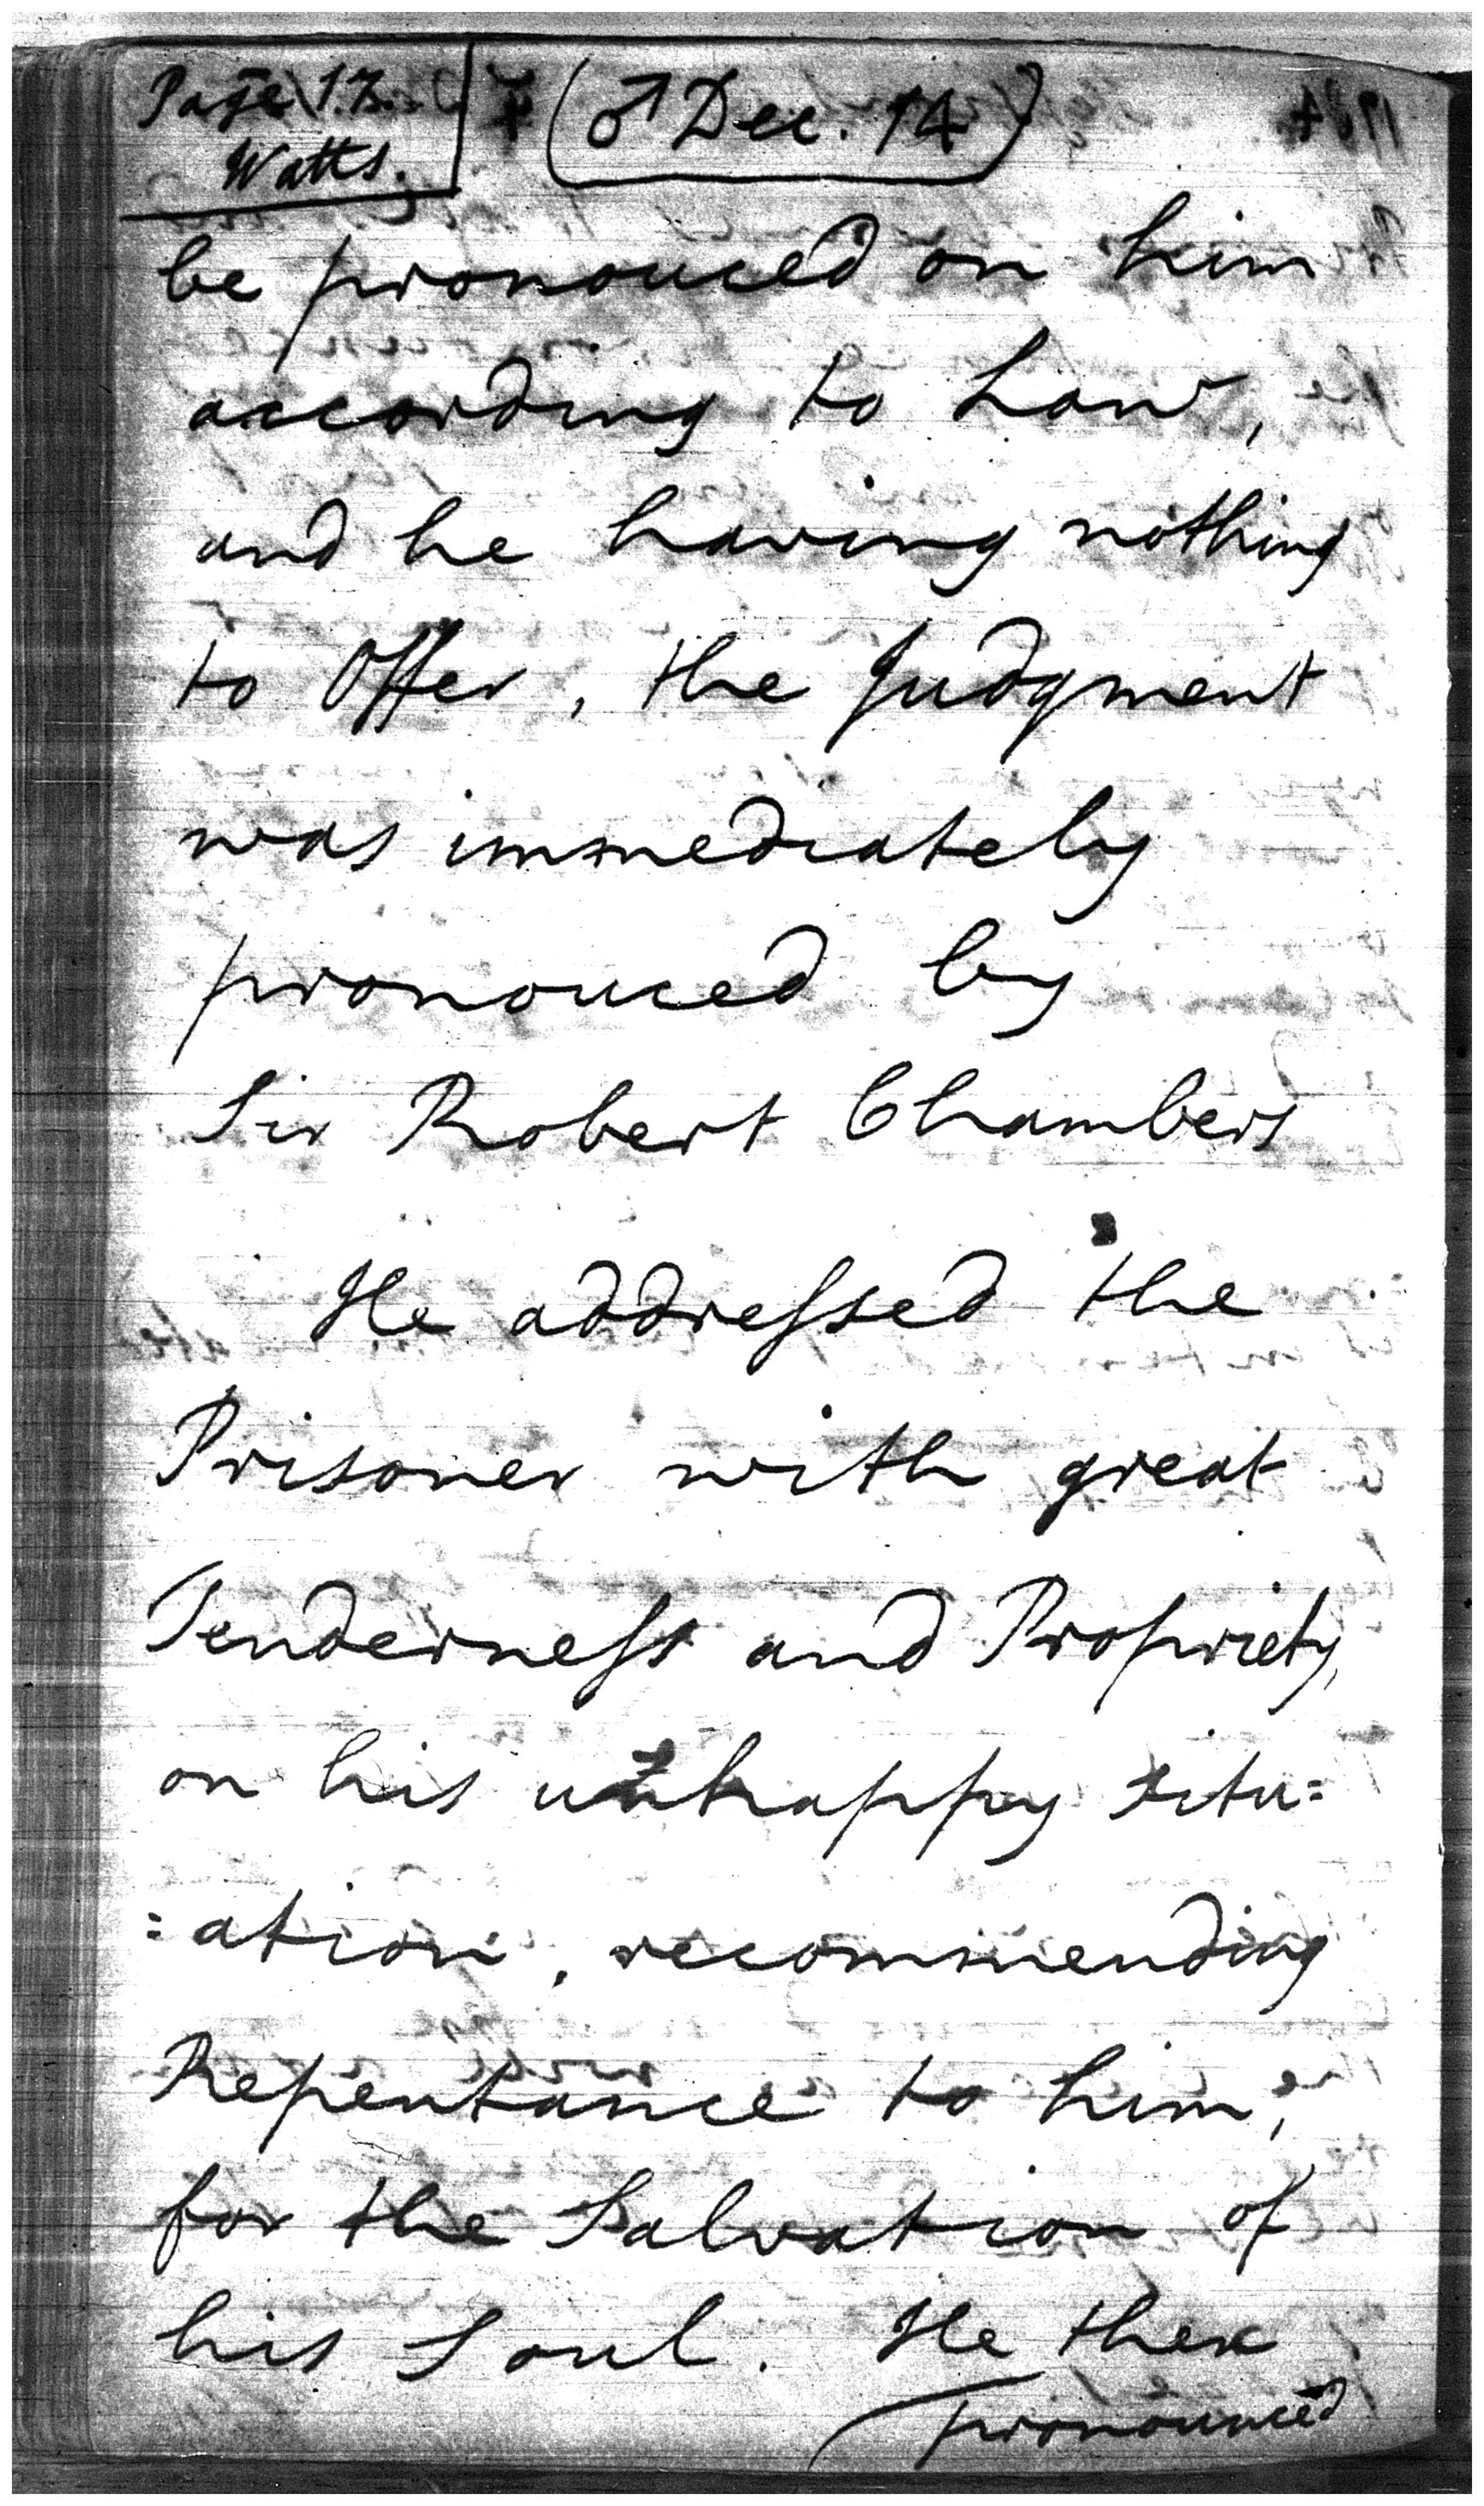 Page 17. (♂ Dec. 14)
Watts.
be pronouced on him
according to Law,
and he having nothing
to Offer, the Judgment
was immediately
pronouced by
Sir Robert Chambers
He addreſsed the
Prisoner with great
Tenderneſs and Propriety,
on his unhappy situ=
=ation, recommending
Repentance to him,
for the Salvation of
his Soul. He then
pronounced